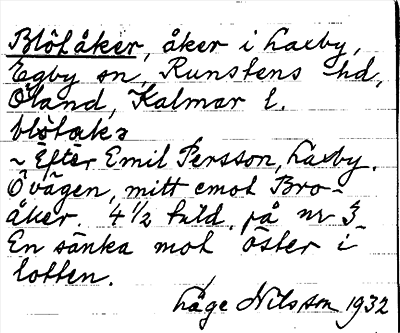 Blötåker, åker i Laxby,
Egby sn, Runstens hd,
Öland, Kalmar l.
blötakɜ
~ Efter Emil Persson, Laxby.
Övägen, mitt emot Bro-
åker. 4 1/2 tnld. på nr 3
En sänka mot öster i
lotten.
Låge Nilsson 1932